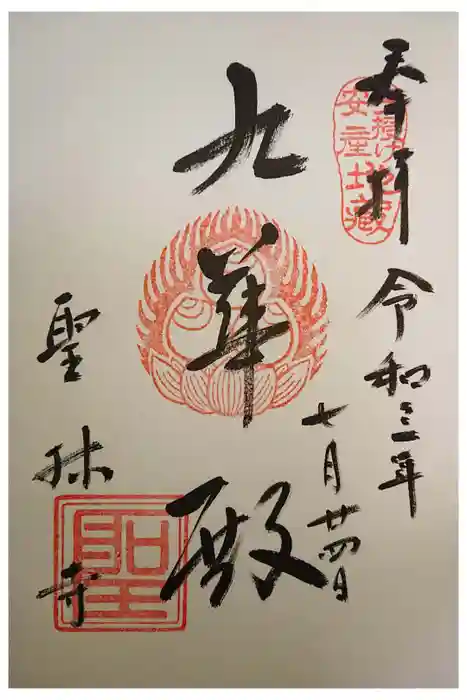 奉拝
子授け
安産地蔵
令和三年
七月廿四日
九華殿
聖林寺
聖